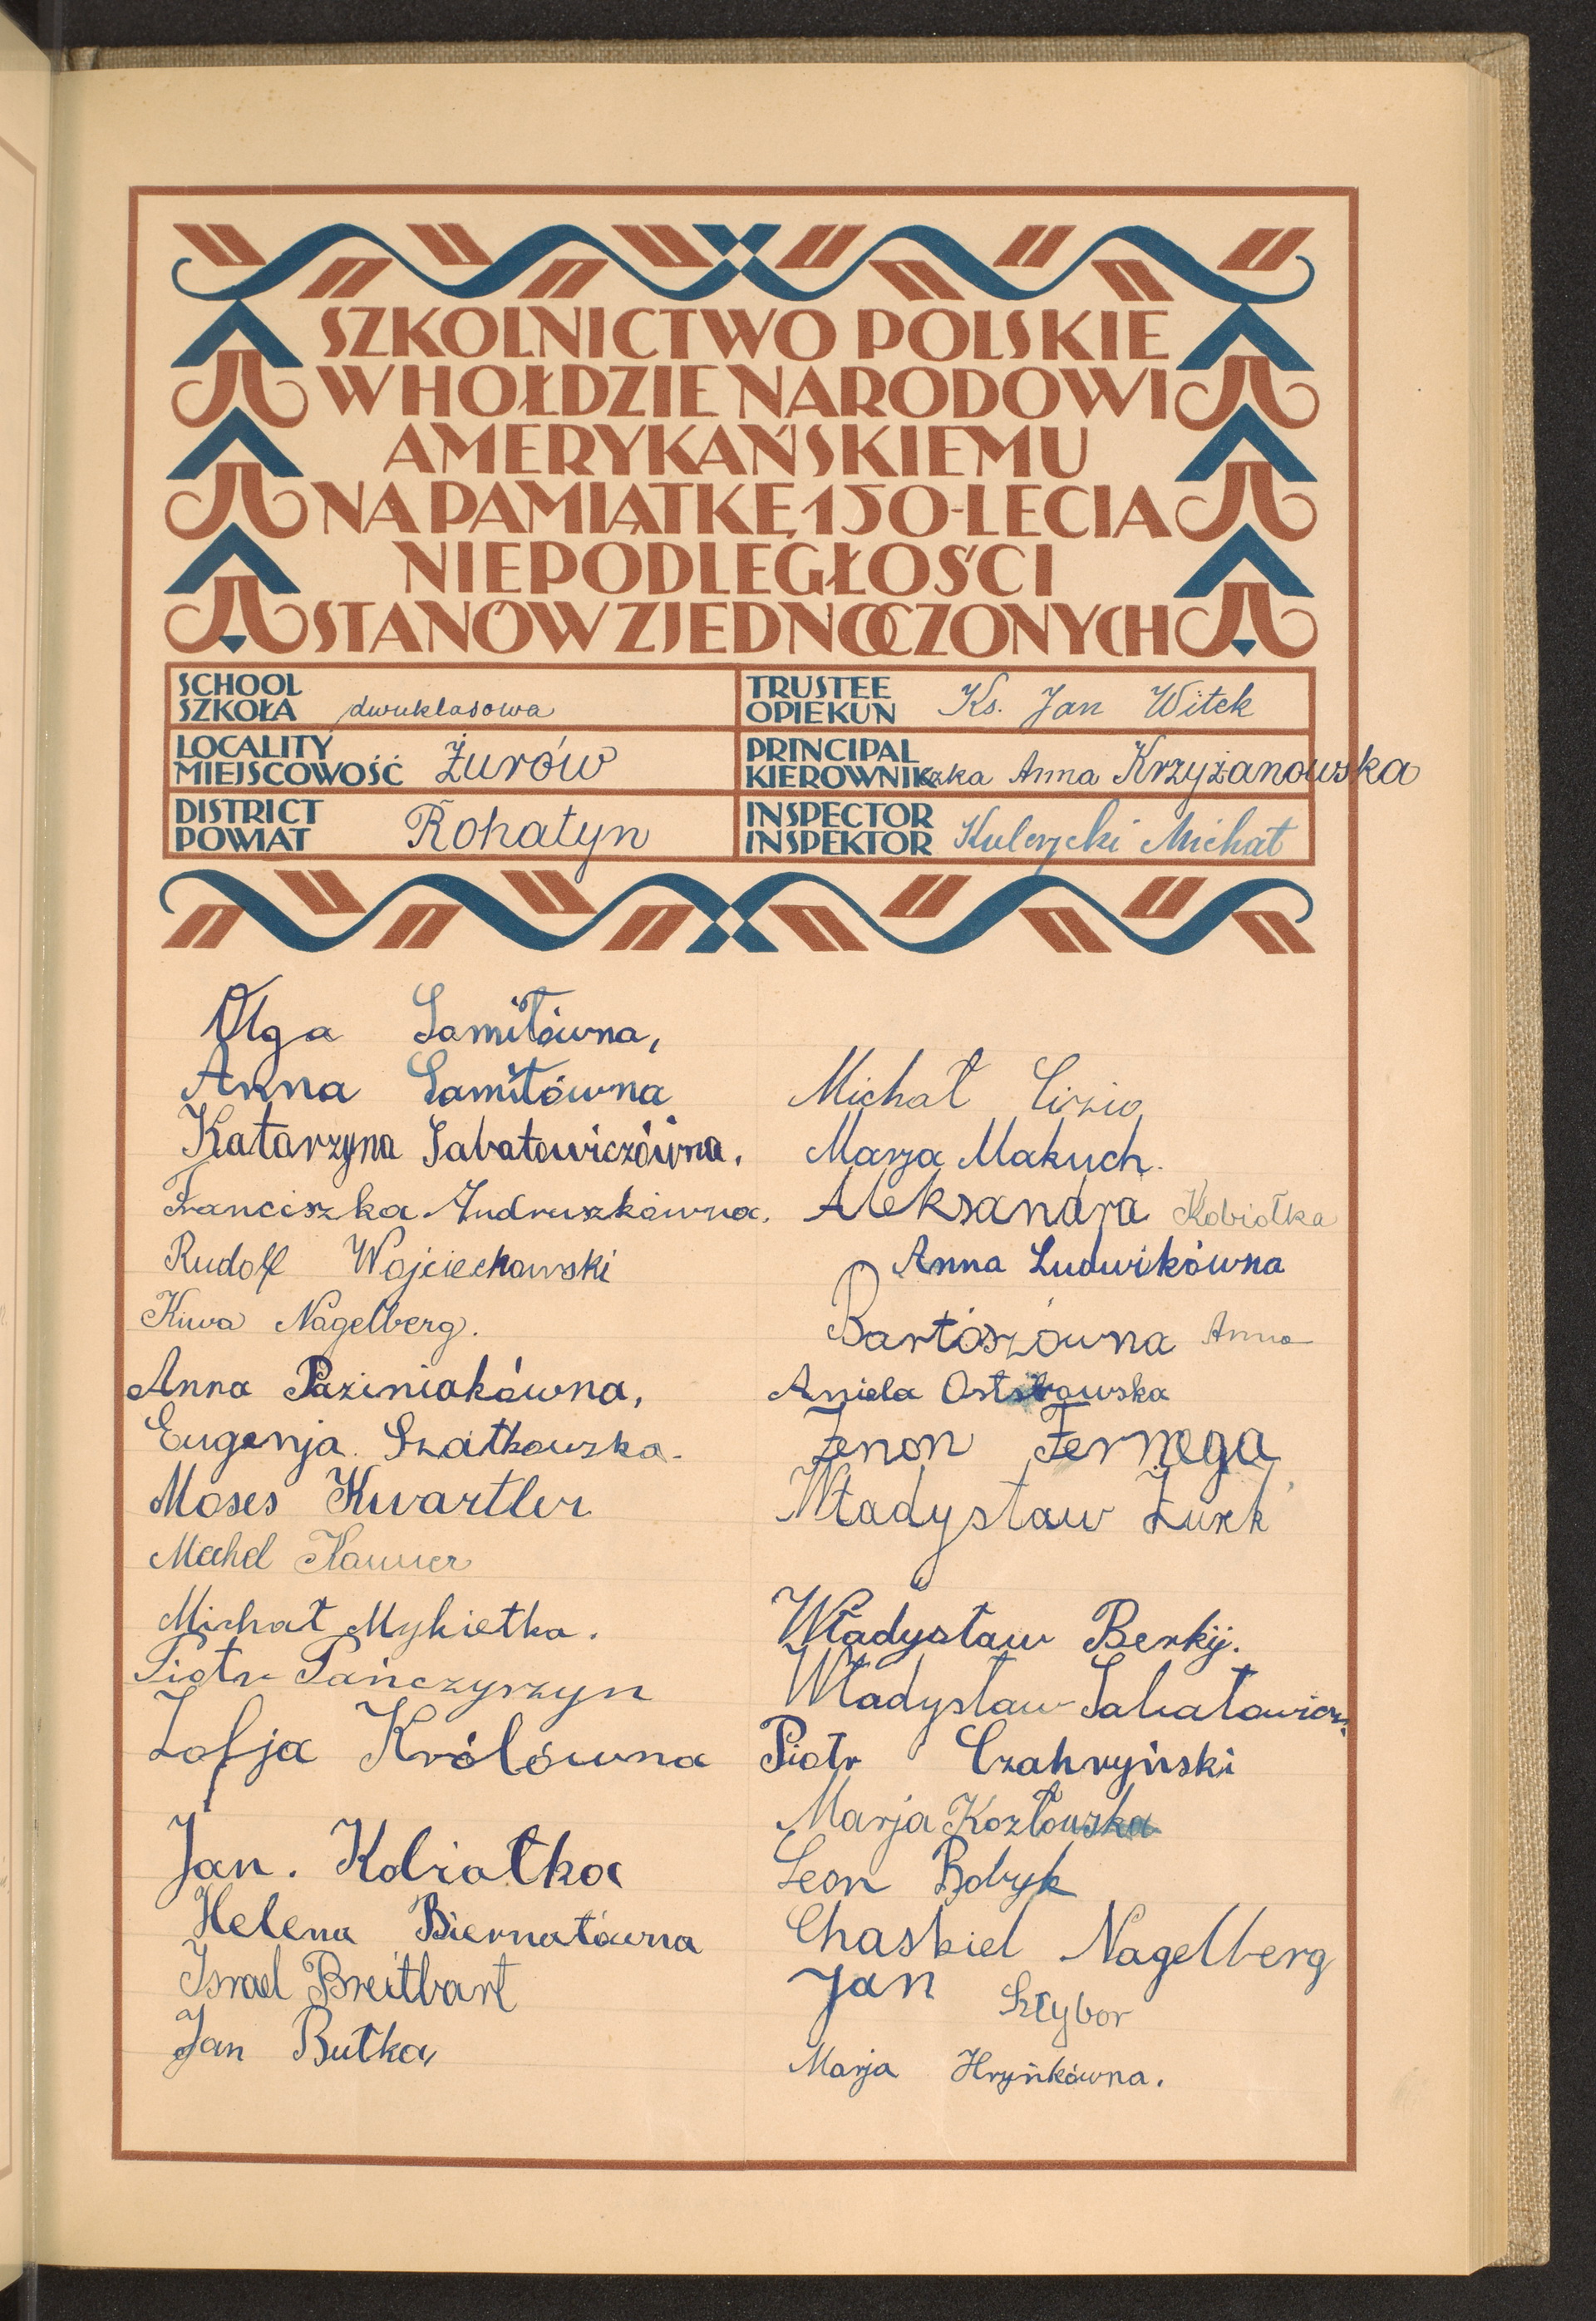 SZKOLNICTWO POLSKIE
W HOŁDZIE NARODOWI
AMERYKAŃSKIEMU
NA PAMIĄTKĘ 150-LECIA
NIEPODLEGŁOŚCI
STANÓW ZJEDNOCZONYCH
SCHOOL
SZKOŁA dwuklasowa
TRUSTEE
OPIEKUN Ks. Jan Witek
LOCALITY
MIEJSCOWOŚĆ Żurów
PRINCIPAL
KIEROWNIKczka Anna Krzyżanowska
DISTRICT
POWIAT Rohatyn
INSPECTOR
INSPEKTOR Kulczycki Michał
Olga Samiłówna,
Anna Samiłówna
Katarzyna Sabatowiczówna.
Franciszka Andruszkówna.
Rudolf Wojciechowski
Kiwa Nagelberg.
Anna Paziniakówna,
Eugenja Szatkowska.
Moses Kwartler
Mechel
Michał Mykietka.
Piotr Pańczyszyn
Zofja Królówna
Jan. Kobiałka
Helena Biernatówna
Israel Breitbart
Jan Butka
Michał
Marja Makuch.
Aleksandra Kobiołka
Anna Ludwikówna
Bartoszówna Anna
Aniela Ostrowska
Zenon Fernega
Władysław Żurek
Władysław Berkij.
Władysław Sabatowicz.
Piotr Czahryński
Marja Kozłowska
Leon Bobyk
Chaskiel Nagelberg
Jan Sztybor
Marja Hryńkówna.